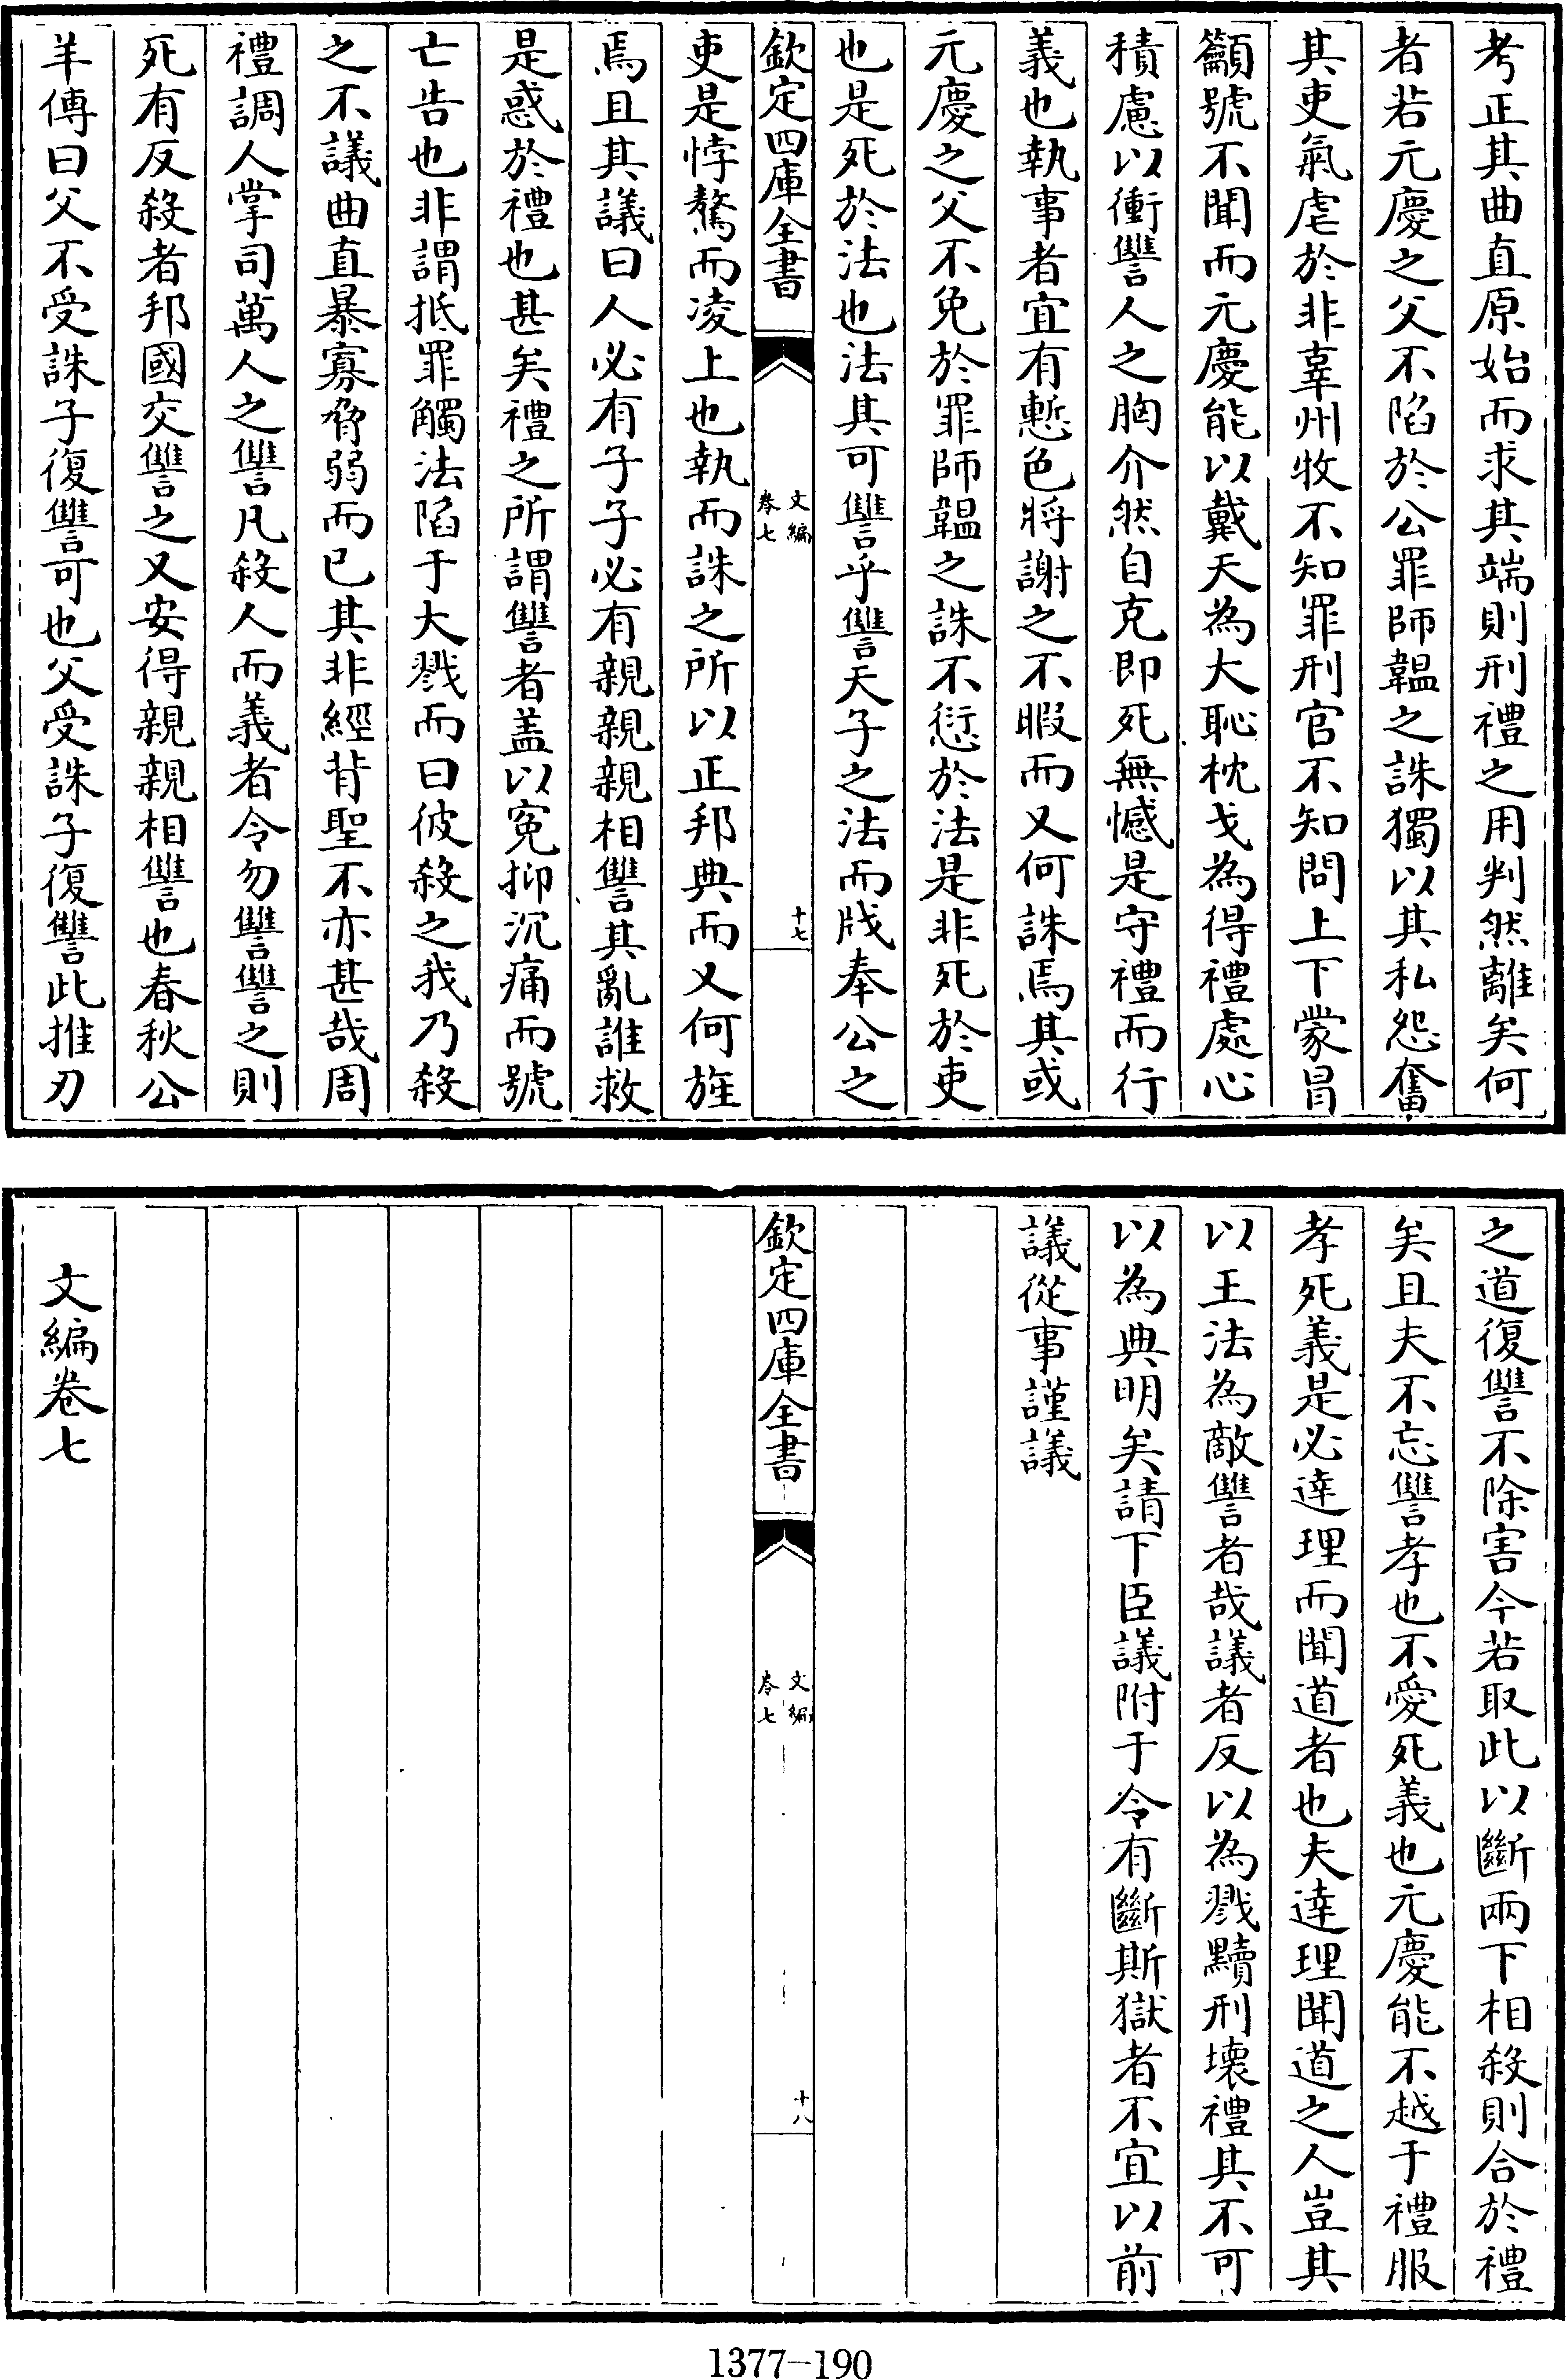 考正其曲直原始而求其端則刑禮之用判然離矣何
者若元慶之父不陷於公罪師韞之誅獨以其私怨奮
其吏氣虐於非辜州牧不知罪刑官不知問上下蒙冒
籲號不聞而元慶能以戴天為大恥枕戈為得禮處心
積慮以衝讐人之胸介然自克即死無憾是守禮而行
義也執事者宜有慙色將謝之不暇而又何誅焉其或
元慶之父不免於罪師韞之誅不愆於法是非死於吏
也是死於法也法其可讐乎讐天子之法而戕奉公之
欽定四庫全書
文編
卷七
十七
吏是悖驁而凌上也執而誅之所以正邦典而又何旌
焉且其議曰人必有子子必有親親親相讐其亂誰救
是惑於禮也甚矣禮之所謂讐者盖以冤抑沉痛而號
亡告也非謂抵罪觸法陷于大戮而曰彼殺之我乃殺
之不議曲直暴寡脅弱而已其非經背聖不亦甚哉周
禮調人掌司萬人之讐凡殺人而義者令勿讐讐之則
死有反殺者邦國交讐之又安得親親相讐也春秋公
羊傳曰父不受誅子復讐可也父受誅子復讐此推刃
之道復讐不除害今若取此以斷兩下相殺則合於禮
矣且夫不忘讐孝也不愛死義也元慶能不越于禮服
孝死義是必達理而聞道者也夫達理聞道之人豈其
以王法為敵讐者哉議者反以為戮黷刑壞禮其不可
以為典明矣請下臣議附于令有斷斯獄者不宜以前
議從事謹議
欽定四庫全書
文編
卷七
十八
文編卷七
1377-190